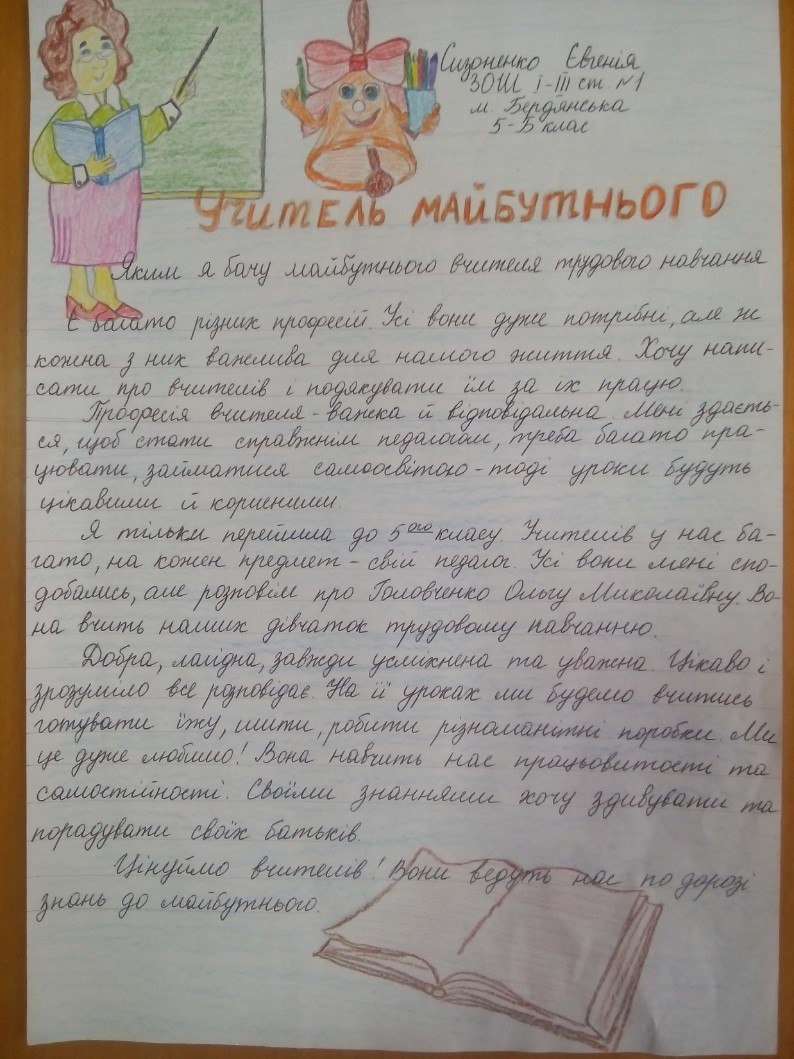 Сизоненко Євгенія
ЗОШ I-III ст. №1
м. Бердянська
5-Б клас
УЧИТЕЛЬ МАЙБУТНЬОГО
Яким я бачу майбутнього вчителя трудового навчання
Є багато різних професій. Усі вони дуже потрібні, але ж
кожна з них важлива для нашого життя. Хочу напи-
сати про вчителів і подякувати їм за їх працю.
Професія вчителя - важка й відповідальна. Мені здаєть-
ся, щоб стати справжнім педагогом, треба багато пра-
цювати, займатися самоосвітою - тоді уроки будуть
цікавими й корисними.
Я тільки перейшла до 5ого класу. Учителів у нас ба-
гато, на кожен предмет - свій педагог. Усі вони мені спо-
добались, але розповім про Головченко Ольгу Миколаївну. Во-
на вчить наших дівчаток трудовому навчанню.
Добра, лагідна, завжди усміхнена та уважна. Цікаво і
зрозуміло все розповідає. На її уроках ми будемо вчитись
готувати їжу, шити, робити різноманітні поробки. Ми
це дуже любимо! Вона навчить нас працьовитості та
самостійності. Своїми знаннями хочу здивувати та
порадувати своїх батьків.
Цінуймо вчителів! Вони ведуть нас по дорозі
знань до майбутнього.